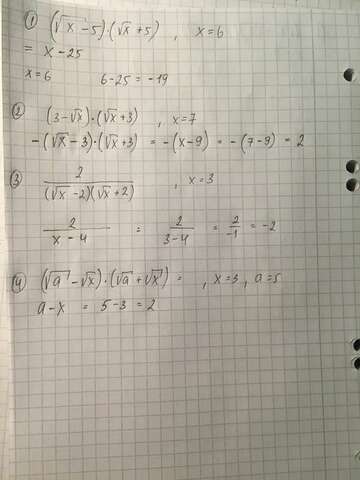 ① (√x - 5)·(√x + 5) , x = 6
= x - 25
x = 6 6 - 25 = -19
② (3 - √x)·(√x + 3) , x = 7
-(√x - 3)·(√x + 3) = -(x - 9) = -(7 - 9) = 2
③ 2/((√x - 2)(√x + 2)) , x = 3
2/(x - 4) = 2/(3 - 4) = 2/-1 = -2
④ (√a - √x)·(√a + √x) = , x = 3, a = 5
a - x = 5 - 3 = 2